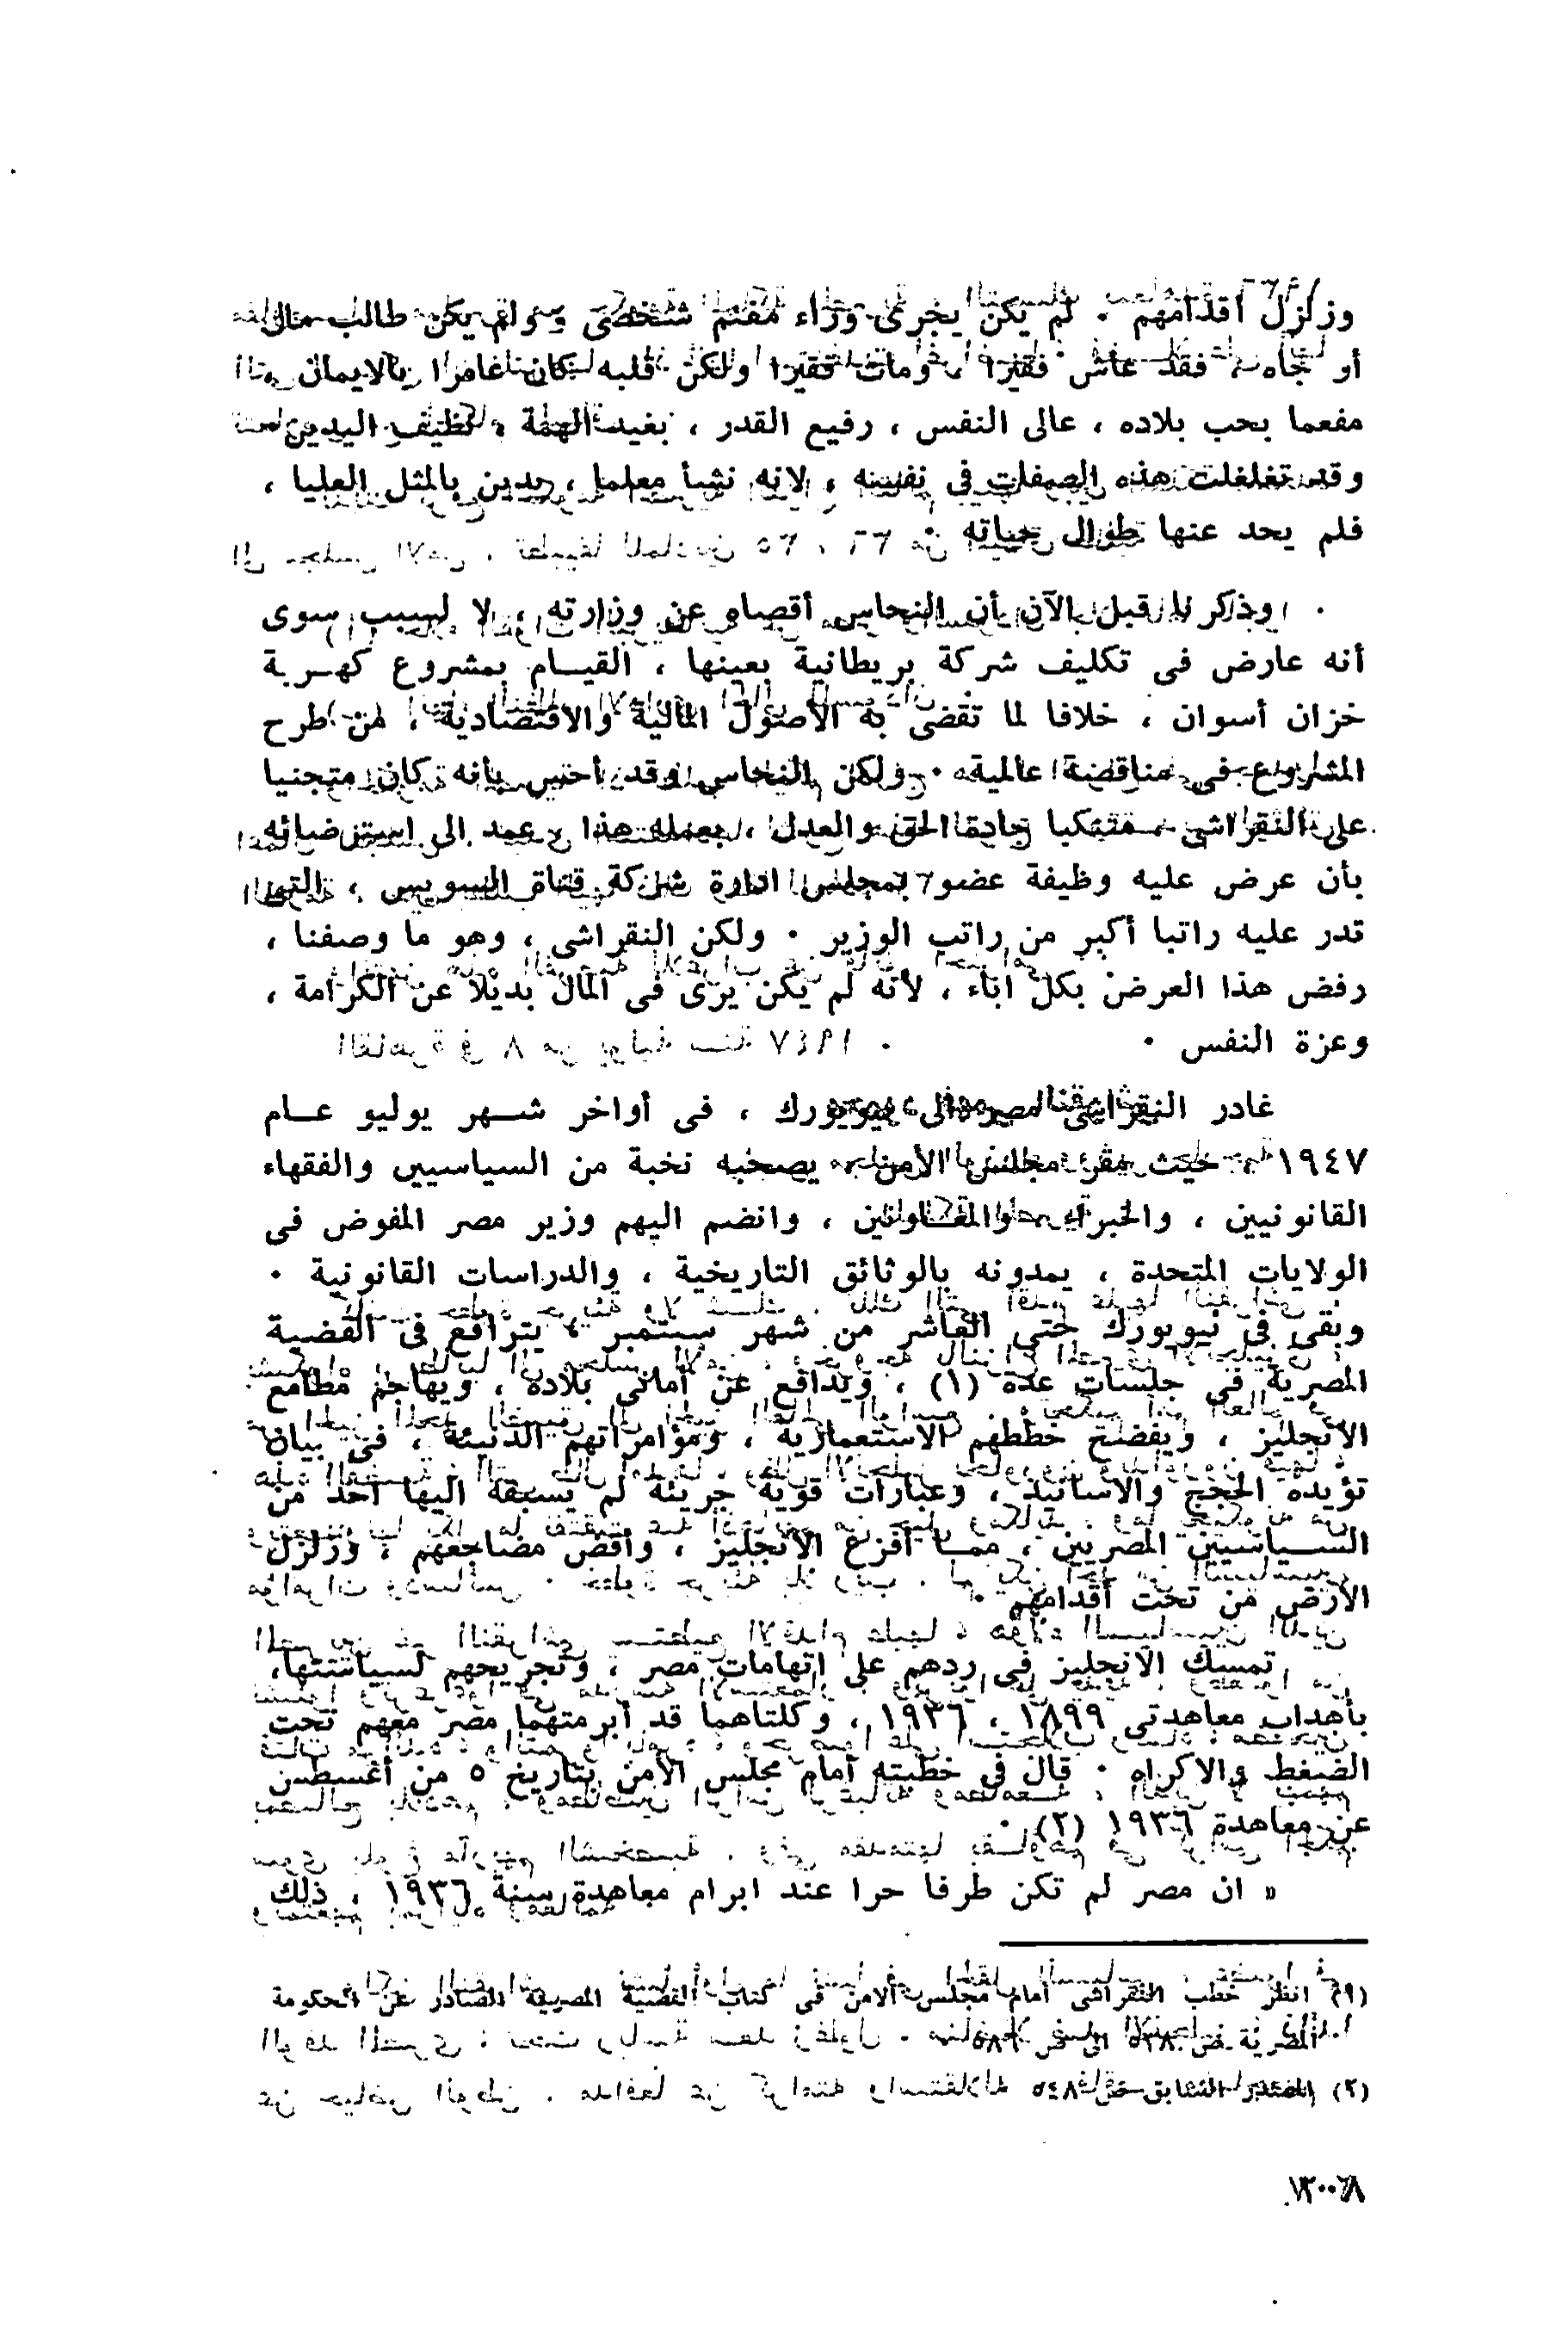 وزلزل أقدامهم . لم يكن يجرى وراء مغنم شخصى ولم يكن طالب مال
أو جاه ، فقد عاش فقيرا ، ومات فقيرا ولكن قلبه كان عامرا بالايمان ،
مفعما بحب بلاده ، عالى النفس ، رفيع القدر ، بعيد الهمة ، نظيف اليدين
وقد تغلغلت هذه الصفات فى نفسه ، لانه نشأ معلما ، يدين بالمثل العليا ،
فلم يحد عنها طوال حياته .
وذكر لى قبل الآن أن النحاس أقصاه عن وزارته ، لا لسبب سوى
أنه عارض فى تكليف شركة بريطانية بعينها ، القيام بمشروع كهربة
خزان أسوان ، خلافا لما تقضى به الأصول المالية والاقتصادية ، من طرح
المشروع فى مناقصة عالمية . ولكن النحاس وقد أحس بأنه كان متجنيا
على النقراشى ، متنكبا جادة الحق والعدل ، بعمله هذا ، عمد الى استرضائه
بأن عرض عليه وظيفة عضو بمجلس ادارة شركة قناة السويس ، التى
تدر عليه راتبا أكبر من راتب الوزير . ولكن النقراشى ، وهو ما وصفنا ،
رفض هذا العرض بكل اباء ، لأنه لم يكن يرى فى المال بديلا عن الكرامة ،
وعزة النفس .
غادر النقراشى مصر الى نيويورك ، فى أواخر شهر يوليو عام
١٩٤٧ ، حيث مقر مجلس الأمن ، يصحبه نخبة من السياسيين والفقهاء
القانونيين ، والخبراء والمعاونين ، وانضم اليهم وزير مصر المفوض فى
الولايات المتحدة ، يمدونه بالوثائق التاريخية ، والدراسات القانونية .
وبقى فى نيويورك حتى العاشر من شهر سبتمبر ، يترافع فى القضية
المصرية فى جلسات عدة (١) ، ويدافع عن أمانى بلاده ، ويهاجم مطامع
الانجليز ، ويفضح خططهم الاستعمارية ، ومؤامراتهم الدنيئة ، فى بيان
تؤيده الحجج والأسانيد ، وعبارات قوية جريئة لم يسبقه اليها أحد من
السياسيين المصريين ، مما أفزع الانجليز ، وأقض مضاجعهم ، وزلزل
الأرض من تحت أقدامهم .
تمسك الانجليز فى ردهم على اتهامات مصر ، وتجريحهم لسياستها،
بأهداب معاهدتى ١٨٩٩ ، ١٩٣٦ ، وكلتاهما قد أبرمتهما مصر معهم تحت
الضغط والاكراه . قال فى خطبته أمام مجلس الأمن بتاريخ ٥ من أغسطس
عن معاهدة ١٩٣٦ (٢) .
« ان مصر لم تكن طرفا حرا عند ابرام معاهدة سنة ١٩٣٦ ، ذلك
(١) انظر خطب النقراشى أمام مجلس الامن فى كتاب القضية المصرية الصادر عن الحكومة
المصرية
(٢) المصدر السابق